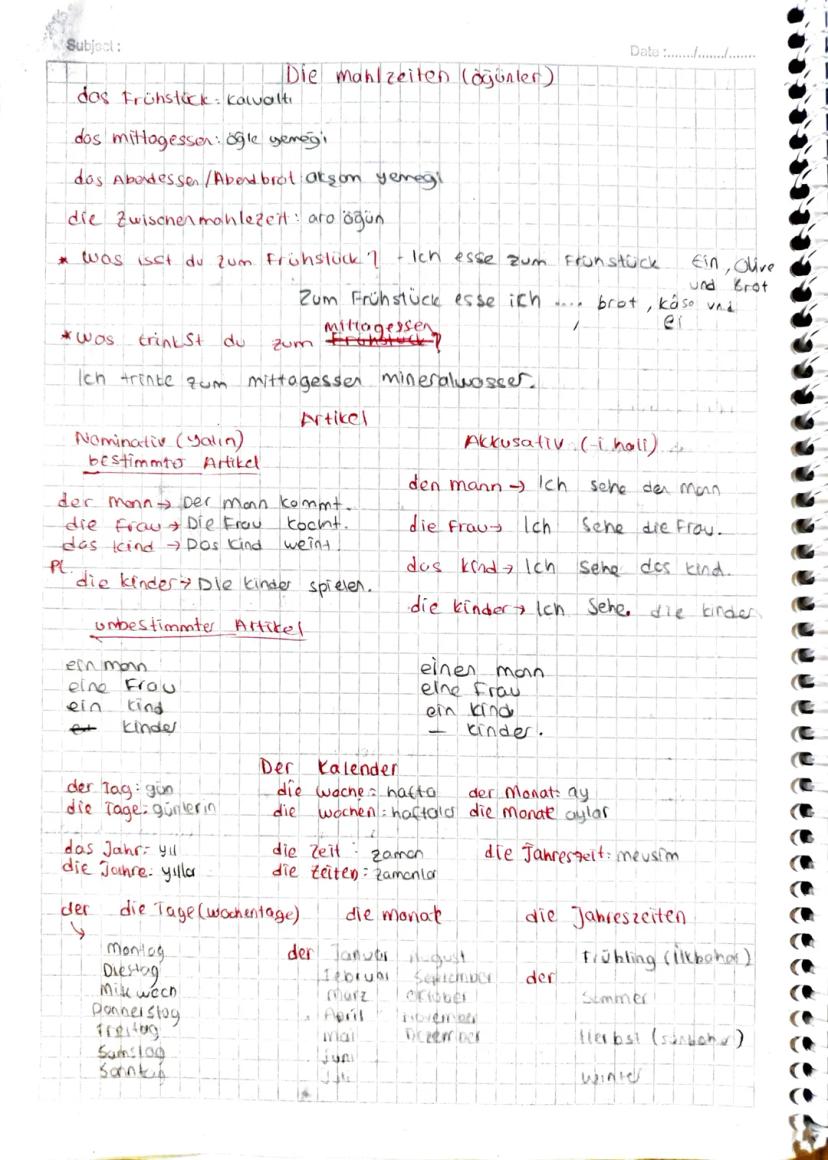 Subject :
Date :......./......./.......
Die mahlzeiten (öğünler)
das Frühstück: kavaltı
das mittagessen: öğle yemeği
das Abendessen/Abendbrot akşam yemeği
die Zwischenmahlezeit: ara öğün
* Was isst du zum Frühstück? - Ich esse zum Frühstück Ein, Olive und Brot
Zum Frühstück esse ich .... brot, käse und ei
mittagessen
* Was trinkst du zum Frühstück?
Ich trinke zum mittagessen mineralwasser.
Artikel
Nominativ (yalın)
bestimmter Artikel
Akkusativ (-i hali)
den mann → Ich sehe den mann
der mann → Der mann kommt.
die Frau → Die Frau kocht.
die Frau → Ich sehe die Frau.
das kind → Das kind weint.
das kind → Ich sehe das kind.
Pl.
die kinder → Die kinder spielen.
die kinder → Ich sehe. die kinder
unbestimmter Artikel
ein mann einen mann
eine Frau eine Frau
ein kind ein kind
kinder – kinder.
Der Kalender
der Tag: gün die woche: hafta der Monat: ay
die Tage: günlerin die wochen: haftala die monate aylar
das Jahr: yıl die zeit : zaman die Jahreszeit: mevsim
die Jahre: yıllar die zeiten: zamanla
der die Tage (wochentage) die monat die Jahreszeiten
montag der Januar August Frühling (ilkbahar)
Diestag Februar September der
Mittwoch März Oktober Sommer
Donnerstag April november
Freitag mai Dezember Herbst (sonbahar)
Samstag juni
Sonntag juli winter